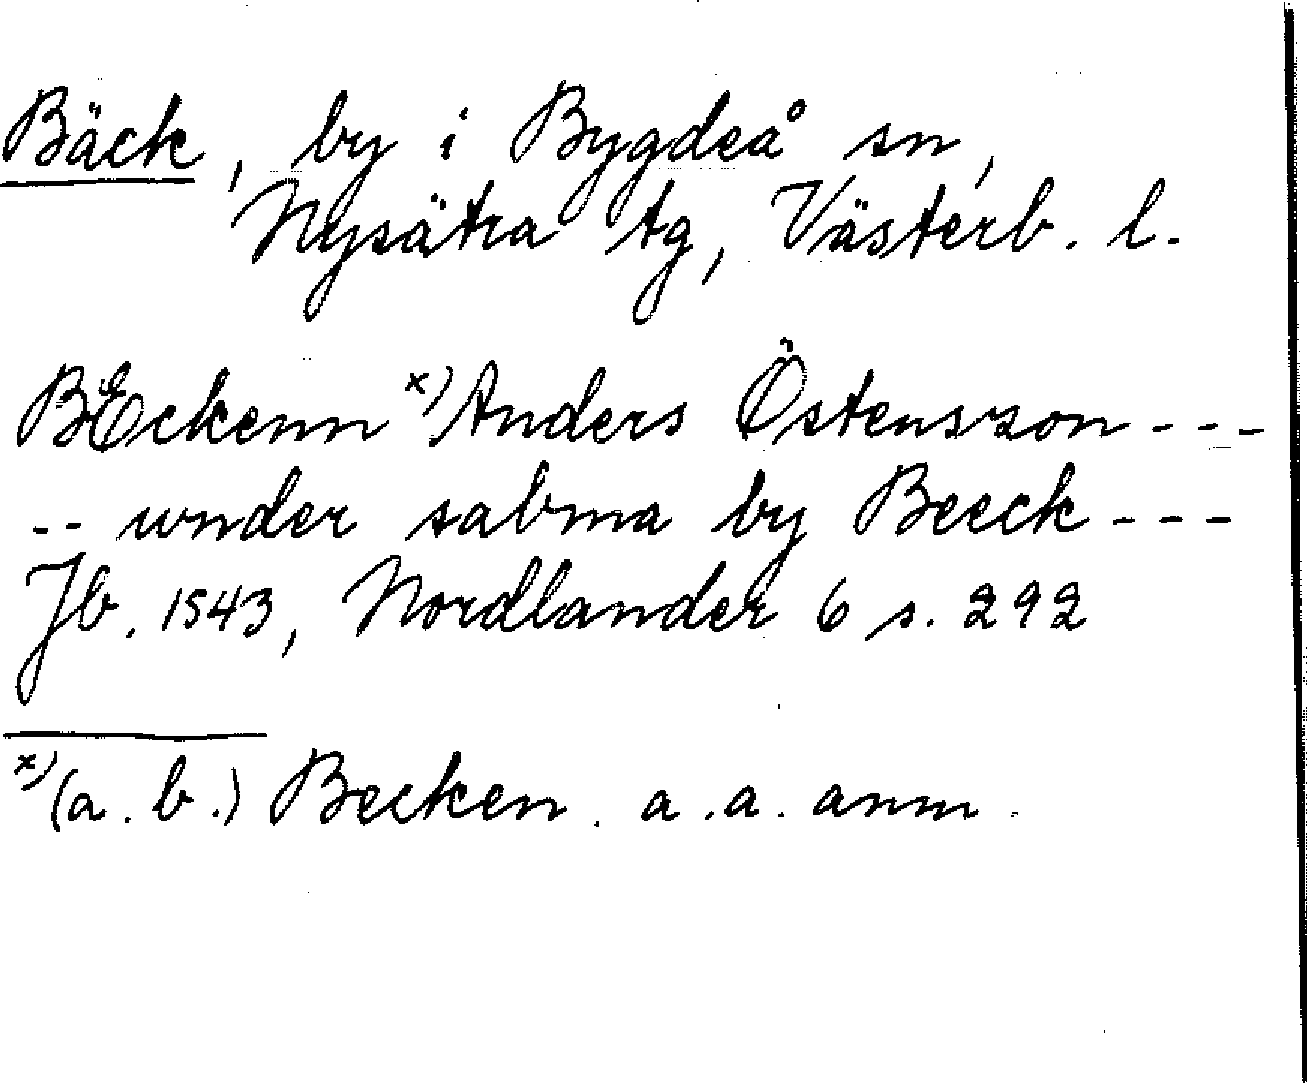 Bäck, by i Bygdeå sn,
Nysätra tg, Västerb. l.
BEckenn x) Anders Östensson - - -
- - wnder sabma by Beeck - - -
Jb. 1543, Nordlander 6 s. 292
x) (a. b.) Becken. a. a. anm.